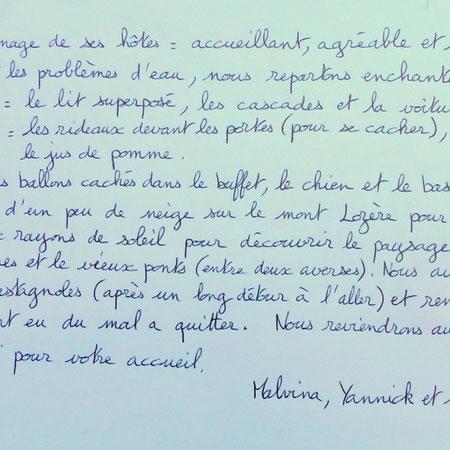 image de ses hôtes = accueillant, agréable et
les problèmes d'eau, nous repartons enchant
= le lit superposé, les cascades et la voitu
= les rideaux devant les portes (pour se cacher),
le jus de pomme.
s ballons cachés dans le buffet, le chien et le bas
d'un peu de neige sur le mont Lozère pour
rayons de soleil pour découvrir le paysage
es et le vieux ponts (entre deux averses). Nous au
estagnoles (après un long détour à l'aller) et ren
nt eu du mal a quitter. Nous reviendrons au
i pour votre accueil.
Malvina, Yannick et